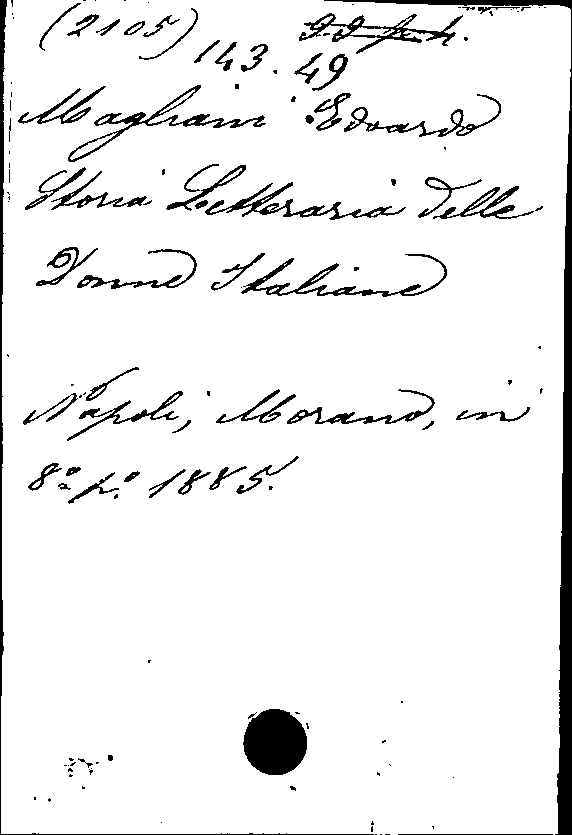 (2105)
143.49
Magliani Edoardo
Storia Letteraria delle
Donne Italiane
Napoli, Morano, in
8º pº. 1885.